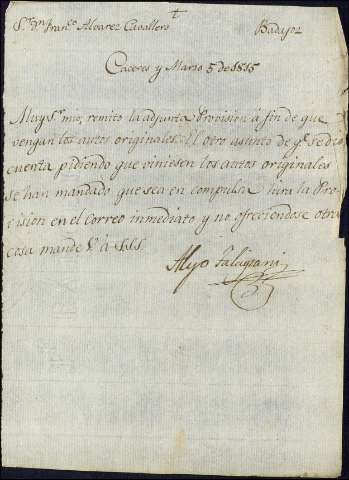 S.r D.n Fran.co Alvarez Cavallero Badajoz
Caceres y Marzo 5 de 1815
Muy S.r mio, remito la adjunta Provision á fin de que
vengan los autos originales. El otro asunto de q.e se dio
cuenta pidiendo que viniesen los autos originales
se han mandado que sea en compulsa hira la Pro-
vision en el Correo inmediato, y no ofreciendose otra
cosa mande V. á SSS.